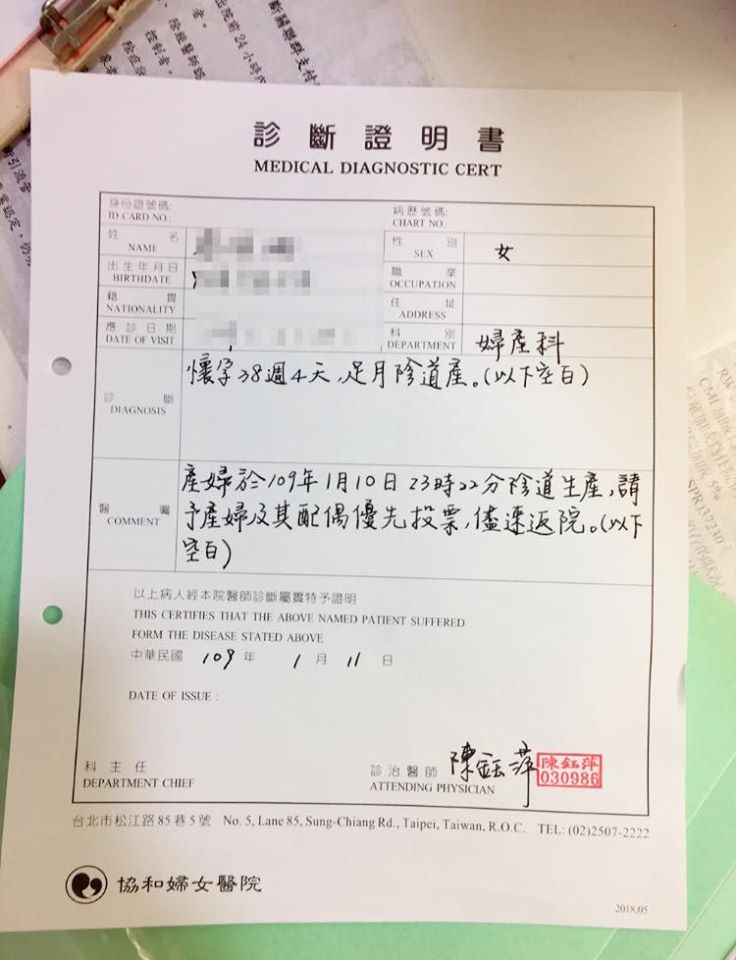 診斷證明書
MEDICAL DIAGNOSTIC CERT
身份證號碼:
ID CARD NO.:
病歷號碼:
CHART NO.:
姓名
NAME
性別
SEX
女
出生年月日
BIRTHDATE
職業
OCCUPATION
籍貫
NATIONALITY
住址
ADDRESS
應診日期
DATE OF VISIT
科別
DEPARTMENT
婦產科
診斷
DIAGNOSIS
懷孕38週4天,足月陰道產。(以下空白)
醫囑
COMMENT
產婦於109年1月10日23時22分陰道生產,請
予產婦及其配偶優先投票,儘速返院。(以下
空白)
以上病人經本院醫師診斷屬實特予證明
THIS CERTIFIES THAT THE ABOVE NAMED PATIENT SUFFERED
FORM THE DISEASE STATED ABOVE
中華民國 109 年 1 月 11 日
DATE OF ISSUE :
科主任
DEPARTMENT CHIEF
診治醫師
ATTENDING PHYSICIAN
陳鈺萍
陳鈺萍
030986
台北市松江路85巷5號 No. 5, Lane 85, Sung-Chiang Rd., Taipei, Taiwan, R.O.C. TEL: (02)2507-2222
協和婦女醫院
2018.05